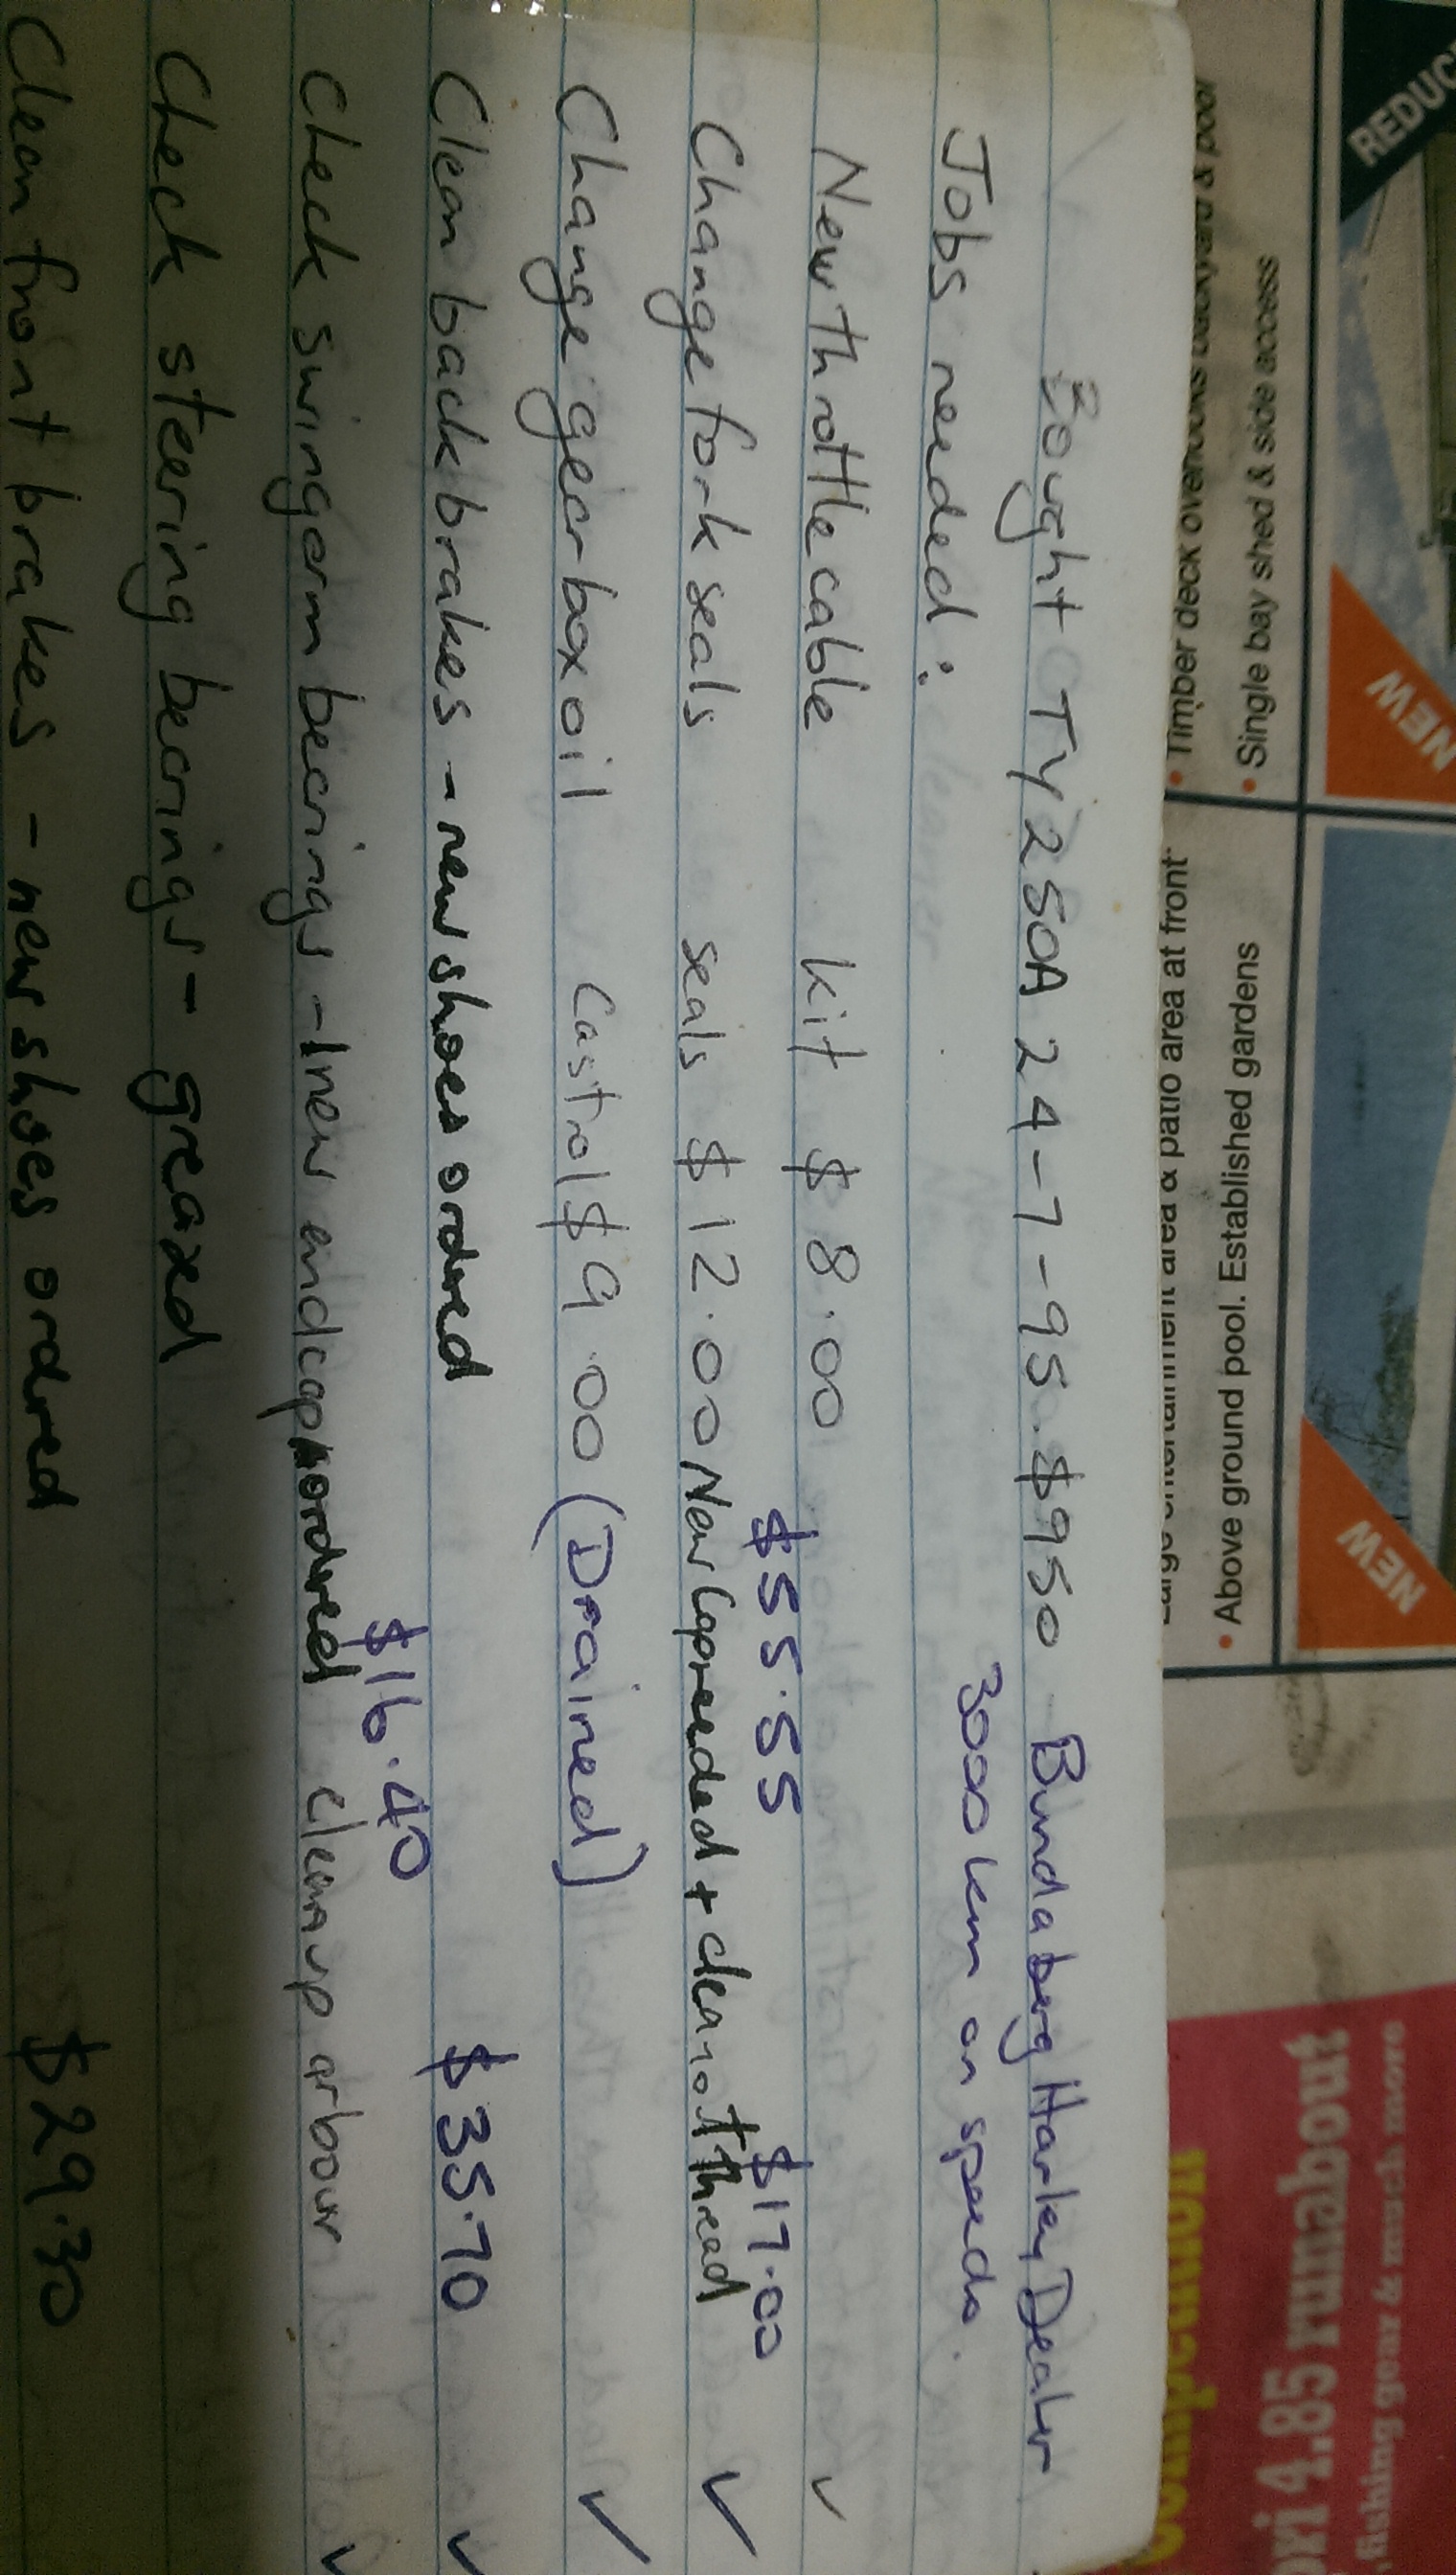 Bought TY250A 24-7-95. $950 Bundaberg Harley Dealer
3000 km on speedo.
Jobs needed:
New throttle cable kit $8.00 ✓
$55.55 $17.00
Change fork seals seals $12.00 New Cap needed + clean out thread ✓
Change gear box oil Castrol $9.00 (Drained) ✓
Clean back brakes - new shoes ordered $35.70 ✓
$16.40
Check swingarm bearings - 1 new endcap ordered clean up arbour ✓
Check steering bearings - greased
Clean front brakes - new shoes ordered $29.30
REDUC
• Timber deck overlooks backyard & pool
• Single bay shed & side access
NEW
Large entertainment area & patio area at front
• Above ground pool. Established gardens
NEW
ori 4.85 runabout
fishing gear & much more